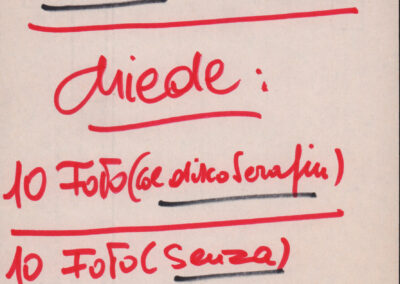 Chiede:
10 FOTO (col disco Serafin)
10 FOTO (Senza)